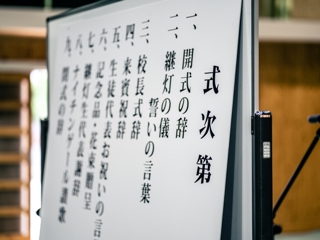 式次第
一、開式の辞
二、継灯の儀
誓いの言葉
三、校長式辞
四、来賓祝辞
五、生徒代表お祝いの言
六、記念品・花束贈呈
七、継灯生代表謝辞
八、ナイチンゲール讃歌
九、閉式の辞